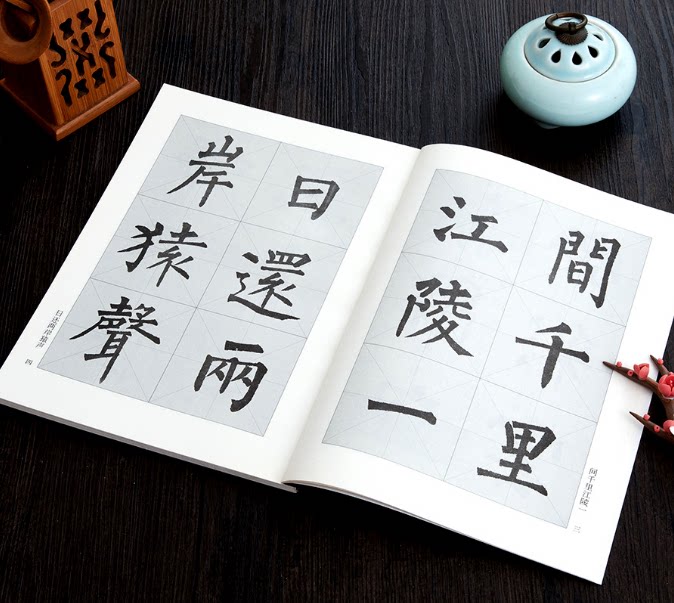 間千里
江陵一
间千里江陵一
三
日還兩
岸猿聲
日还两岸猿声
四